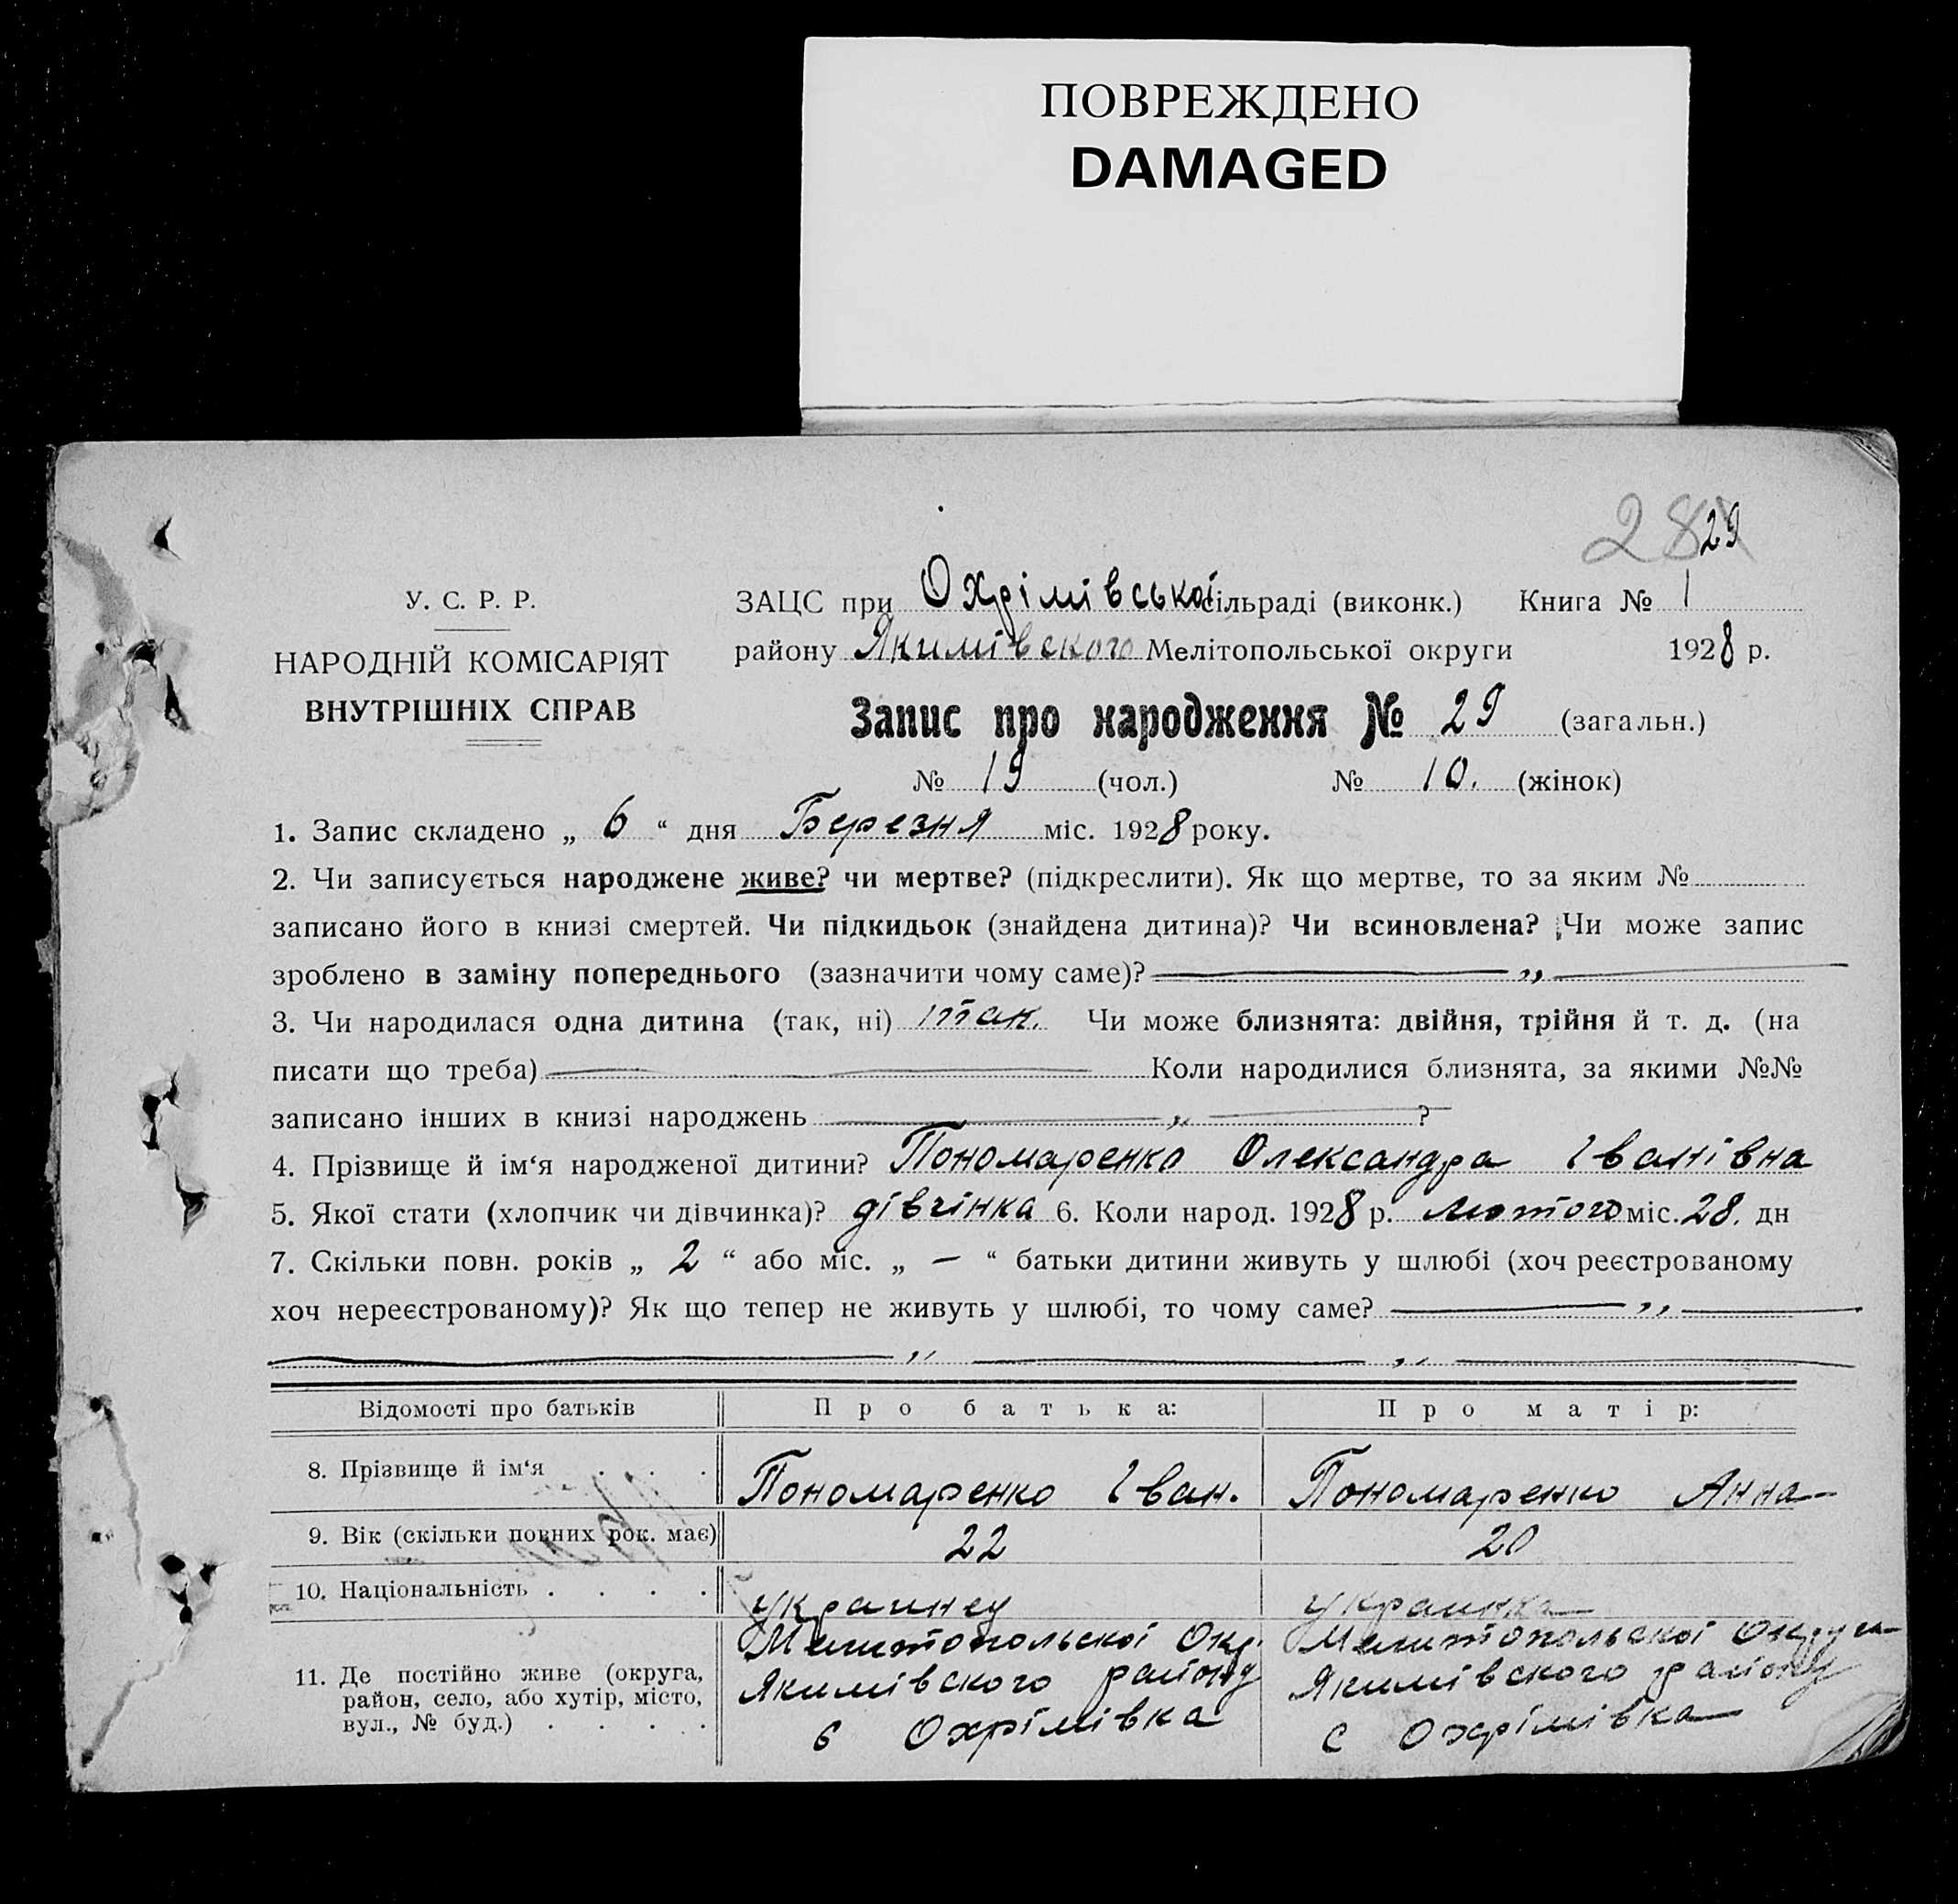 ПОВРЕЖДЕНО
DAMAGED
28 29
У. С. Р. Р.
НАРОДНІЙ КОМІСАРІЯТ
ВНУТРІШНІХ СПРАВ
ЗАЦС при Охрімівської сільраді (виконк.) Книга № 1
району Якимівского Мелітопольської округи 1928 р.
Запис про народження № 29 (загальн.)
№ 19 (чол.) № 10. (жінок)
1. Запис складено „ 6 “ дня Березня міс. 1928 року.
2. Чи записується народжене живе? чи мертве? (підкреслити). Як що мертве, то за яким №
записано його в книзі смертей. Чи підкидьок (знайдена дитина)? Чи всиновлена? Чи може запис
зроблено в заміну попереднього (зазначити чому саме)? — „ —
3. Чи народилася одна дитина (так, ні) так. Чи може близнята: двійня, трійня й т. д. (на
писати що треба) — Коли народилися близнята, за якими №№
записано інших в книзі народжень — „ — ?
4. Прізвище й ім‘я народженої дитини? Пономаренко Олександра Іванівна
5. Якої стати (хлопчик чи дівчинка)? дівчінка 6. Коли народ. 1928 р. лютого міс. 28. дн
7. Скільки повн. років „ 2 “ або міс. „ — “ батьки дитини живуть у шлюбі (хоч реєстрованому
хоч нереєстрованому)? Як що тепер не живуть у шлюбі, то чому саме? — „ —
— „ — „ —
Відомості про батьків Про батька: Про матір:
8. Прізвище й ім‘я . . . Пономаренко Іван. Пономаренко Анна
9. Вік (скільки повних рок. має) 22 20
10. Національність . . . . украинец украинка
11. Де постійно живе (округа, район, село, або хутір, місто, вул., № буд.) . . . .
Мелитопольскоі Окр. Якимівского району с Охрімівка
Мелитопольскоі Округи Якимівского району с Охрімівка